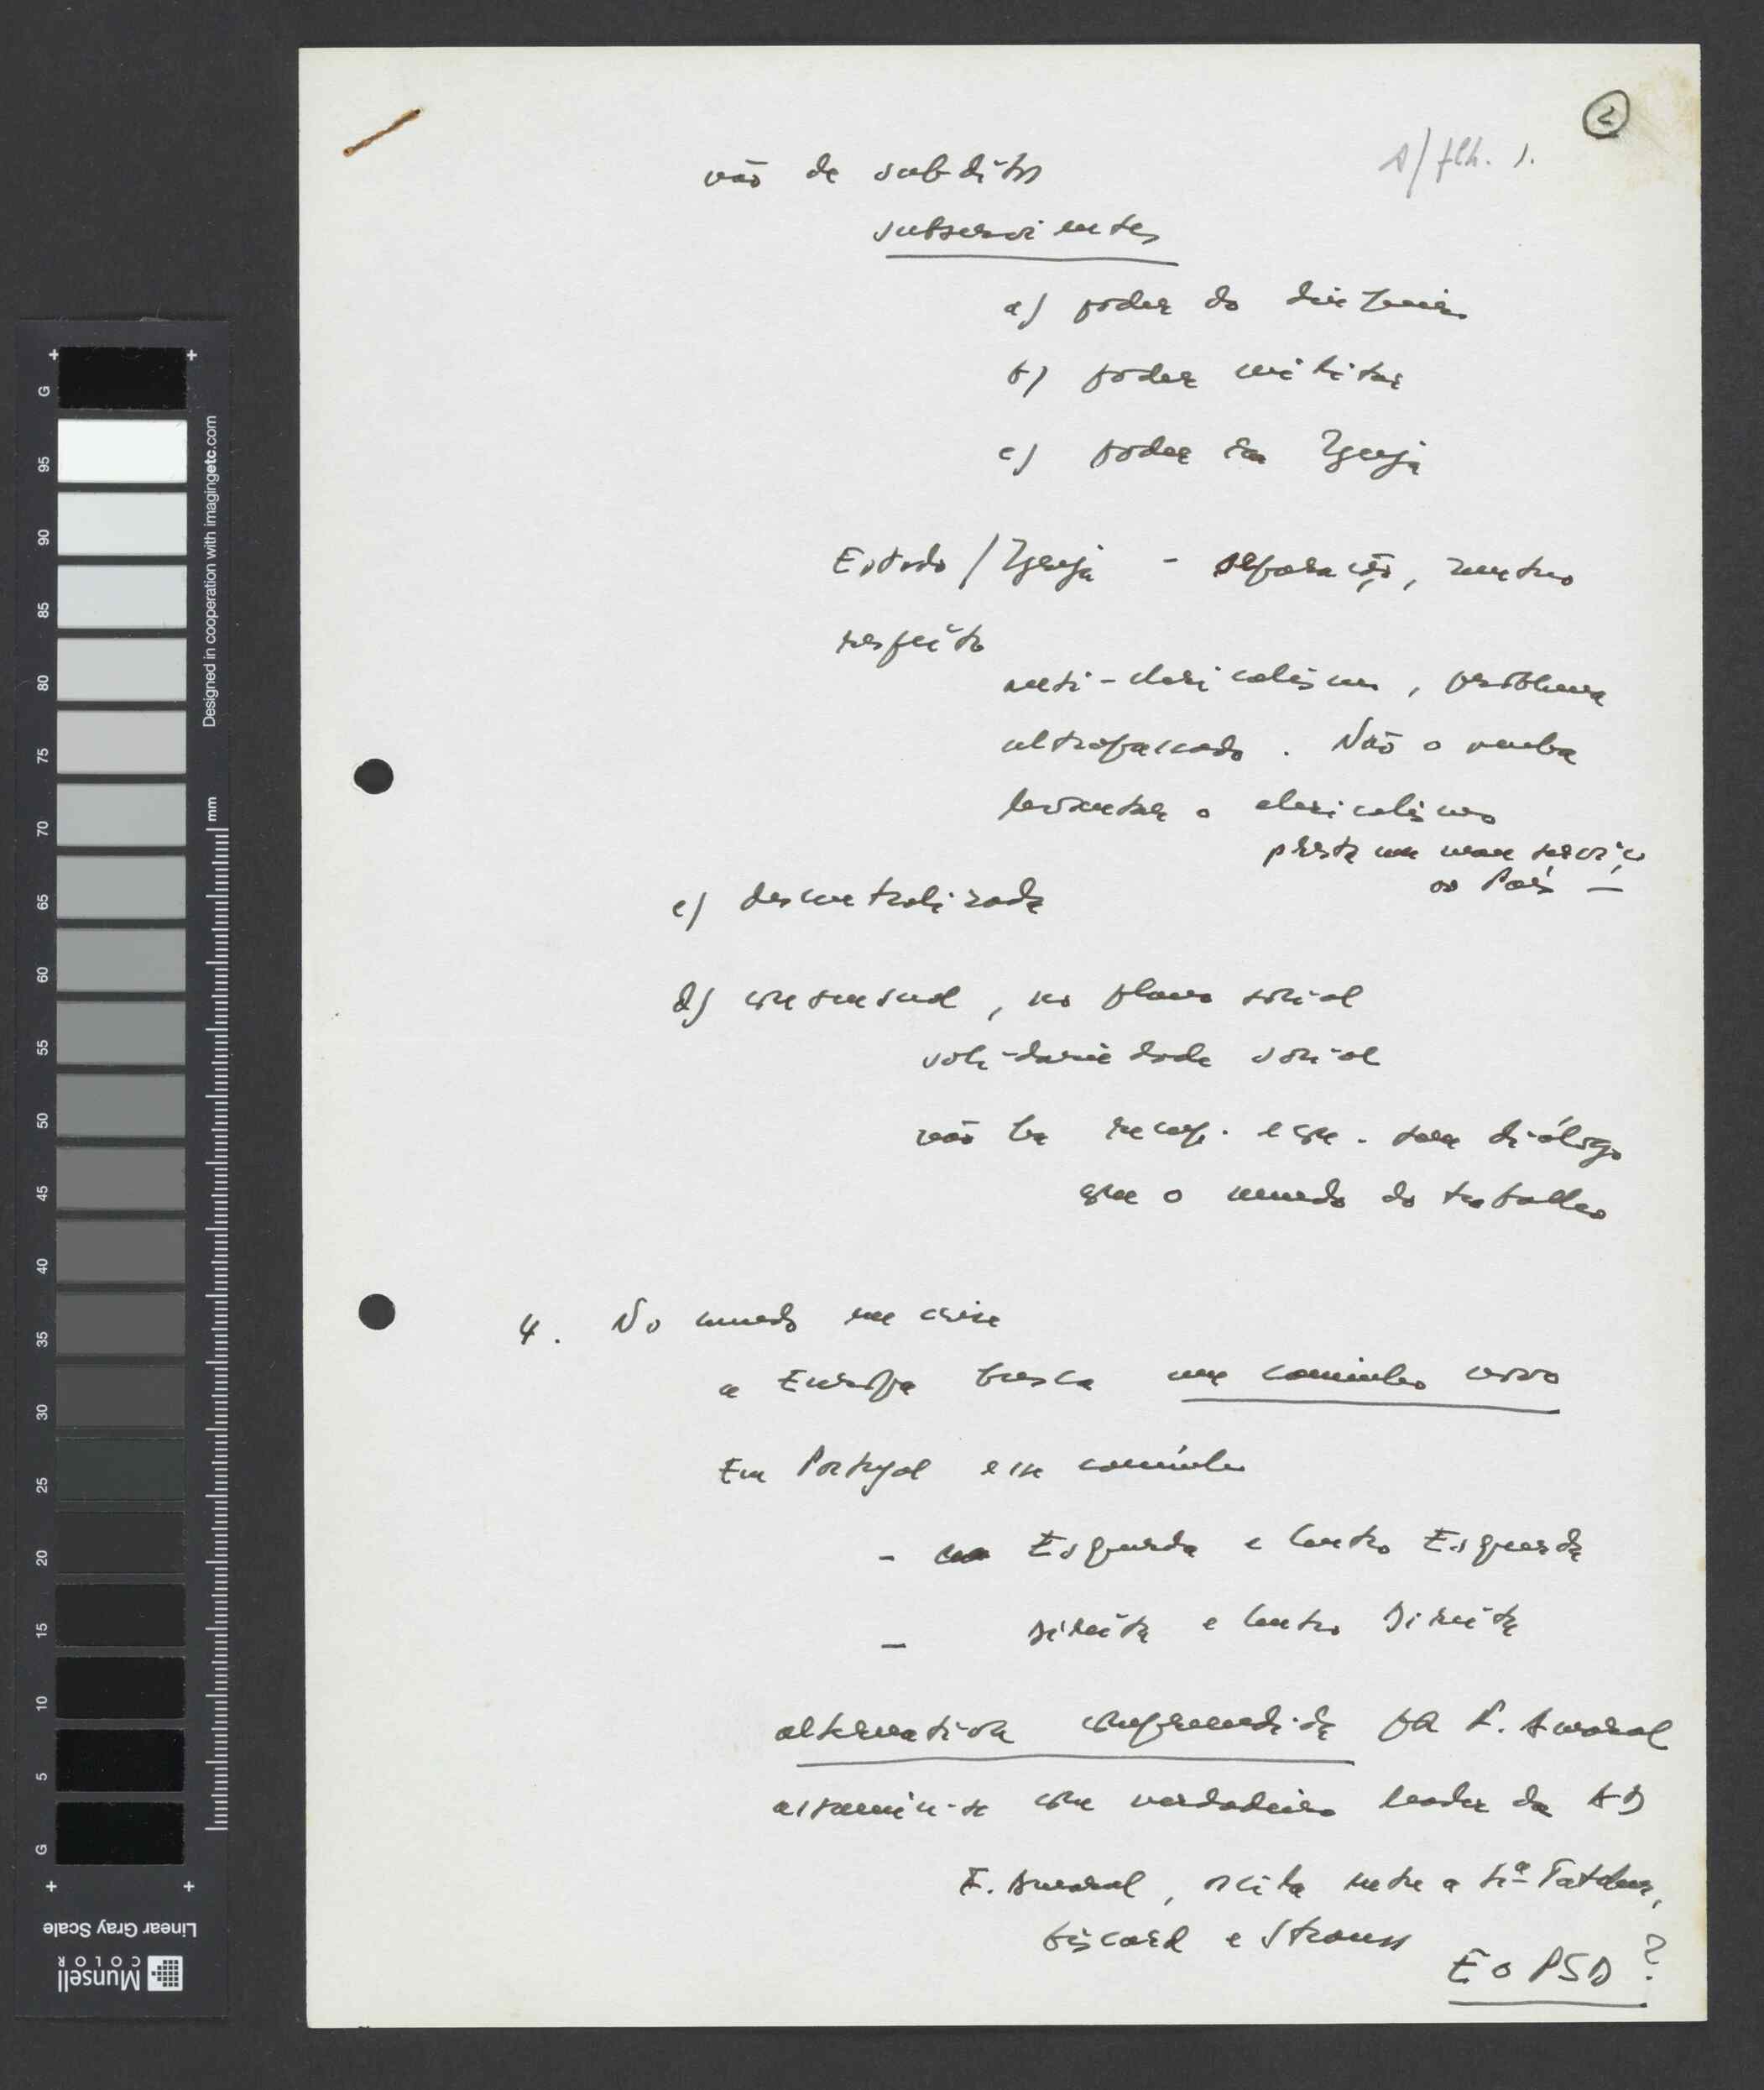 2
s/ flh. 1.
não de subditos
subservientes
a) poder do dinheiro
b) poder militar
c) poder da Igreja
Estado / Igreja - separação, mutuo
respeito
anti-clericalismo, problema
ultrapassado. Não o venha
levantar o clericalismo
presta um mau serviço
ao País —
c) descentralizada
d) consensual, no plano social
solidariedade social
não há recup. econ. sem diálogo
com o mundo do trabalho
4. No mundo em crise
a Europa busca um caminho novo
Em Portugal esse caminho
- Esquerda e Centro Esquerda
- Direita e Centro Direita
alternativa compreendida por F. Amaral
assumiu-se como verdadeiro leader da AD
F. Amaral, oscila entre a Srª Tatcher,
Giscard e Strauss
E o PSD ?
G
95
90
85
80
75
70
65
60
55
50
45
40
35
30
25
20
15
10
5
G
Designed in cooperation with imagingetc.com
mm
Linear Gray Scale
Munsell
COLOR